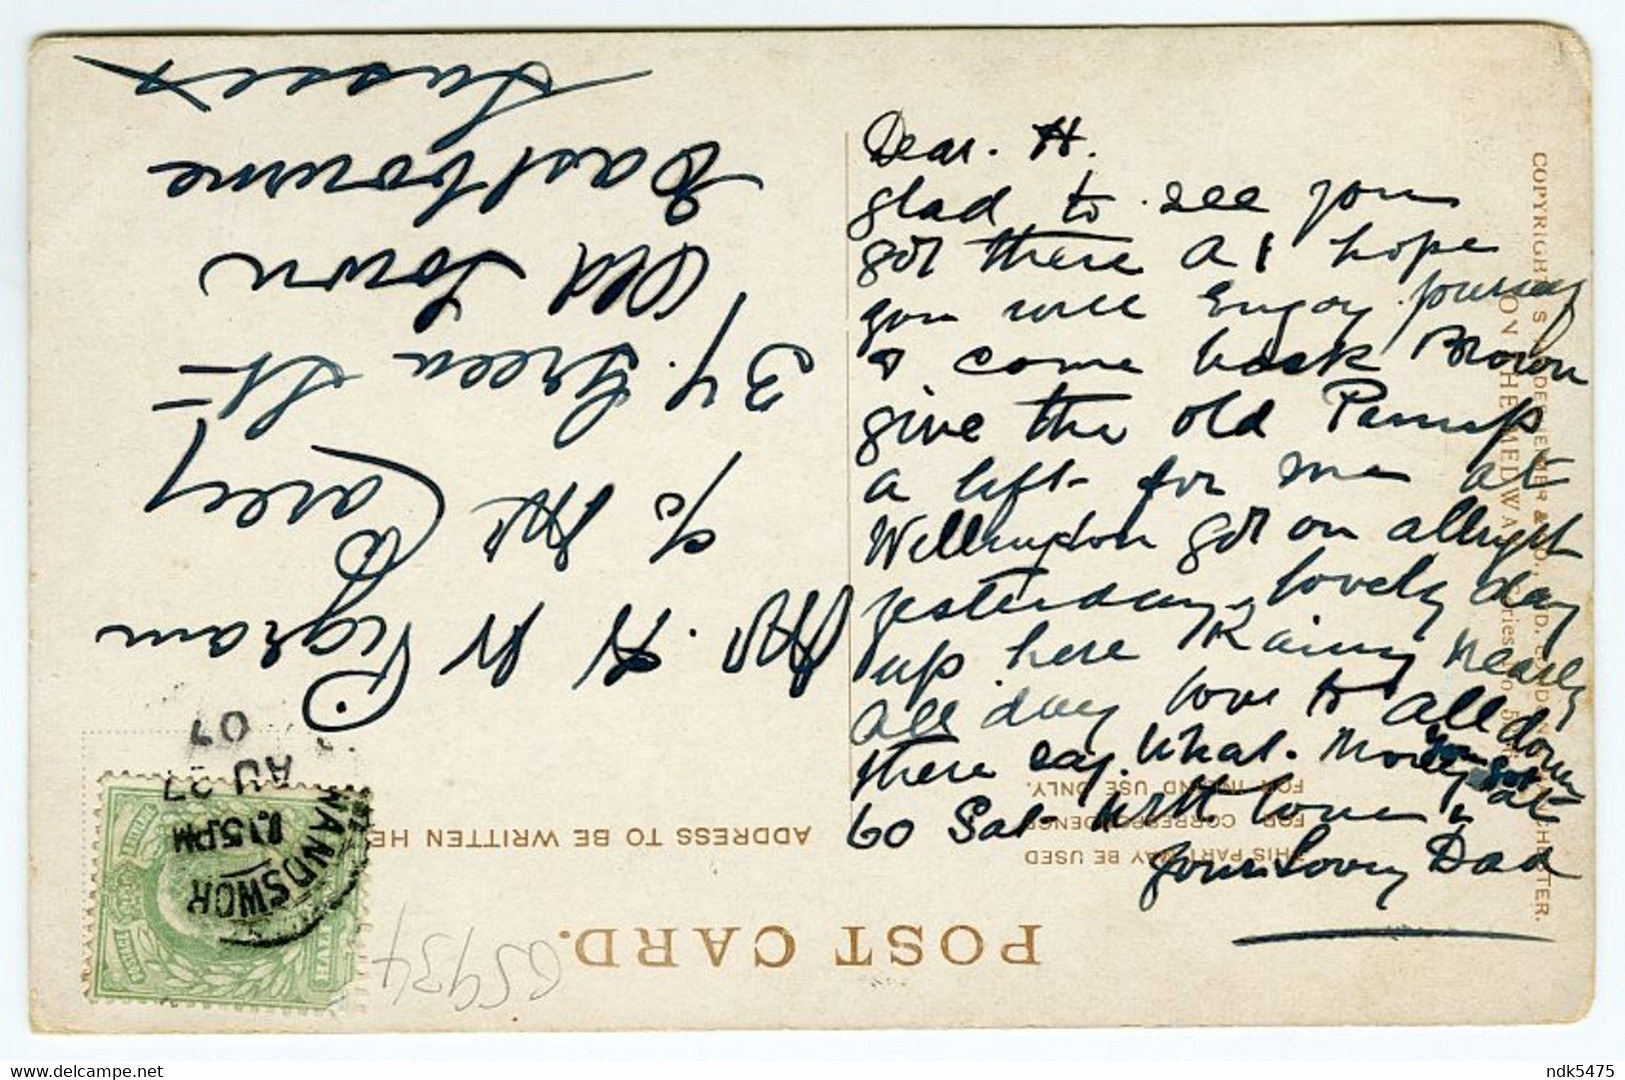 Dear. H.
glad to see you
got there A1 hope
you will Enjoy yourself
& come back Brown
give the old
a left for me at
Wellington got on allright
yesterday, lovely day
up here Rainy Nearly
all day love to all down
there say What. Money you got
to Sat. With love
Your Loving Dad
Mr. H W Pigram
c/o Mr Carey
34. Green St
Old Town
Eastbourne
Sussex
POST CARD.
THIS PART MAY BE USED
FOR CORRESPONDENCE
FOR INLAND USE ONLY.
ADDRESS TO BE WRITTEN HE
WANDSWOR
8.15PM
AU 27
07
65934
ON THE MEDWAY
ndk5475